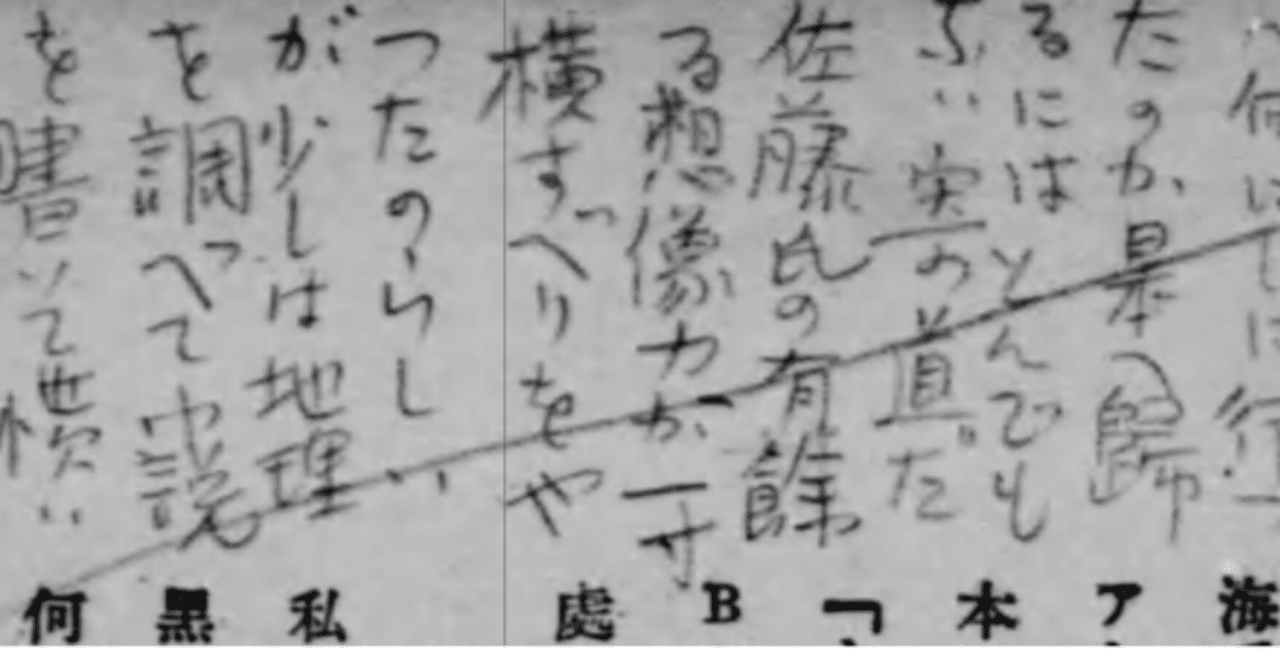 何にしに行つ
たのか日本へ歸
るにはとんでも
の道だ
佐藤氏の有餘
る想像力が一寸
横すべりをや
つたのらしい
が少しは地理
を調べて小説
を書いて
海
ア
本
「
B
處
私
黒
何